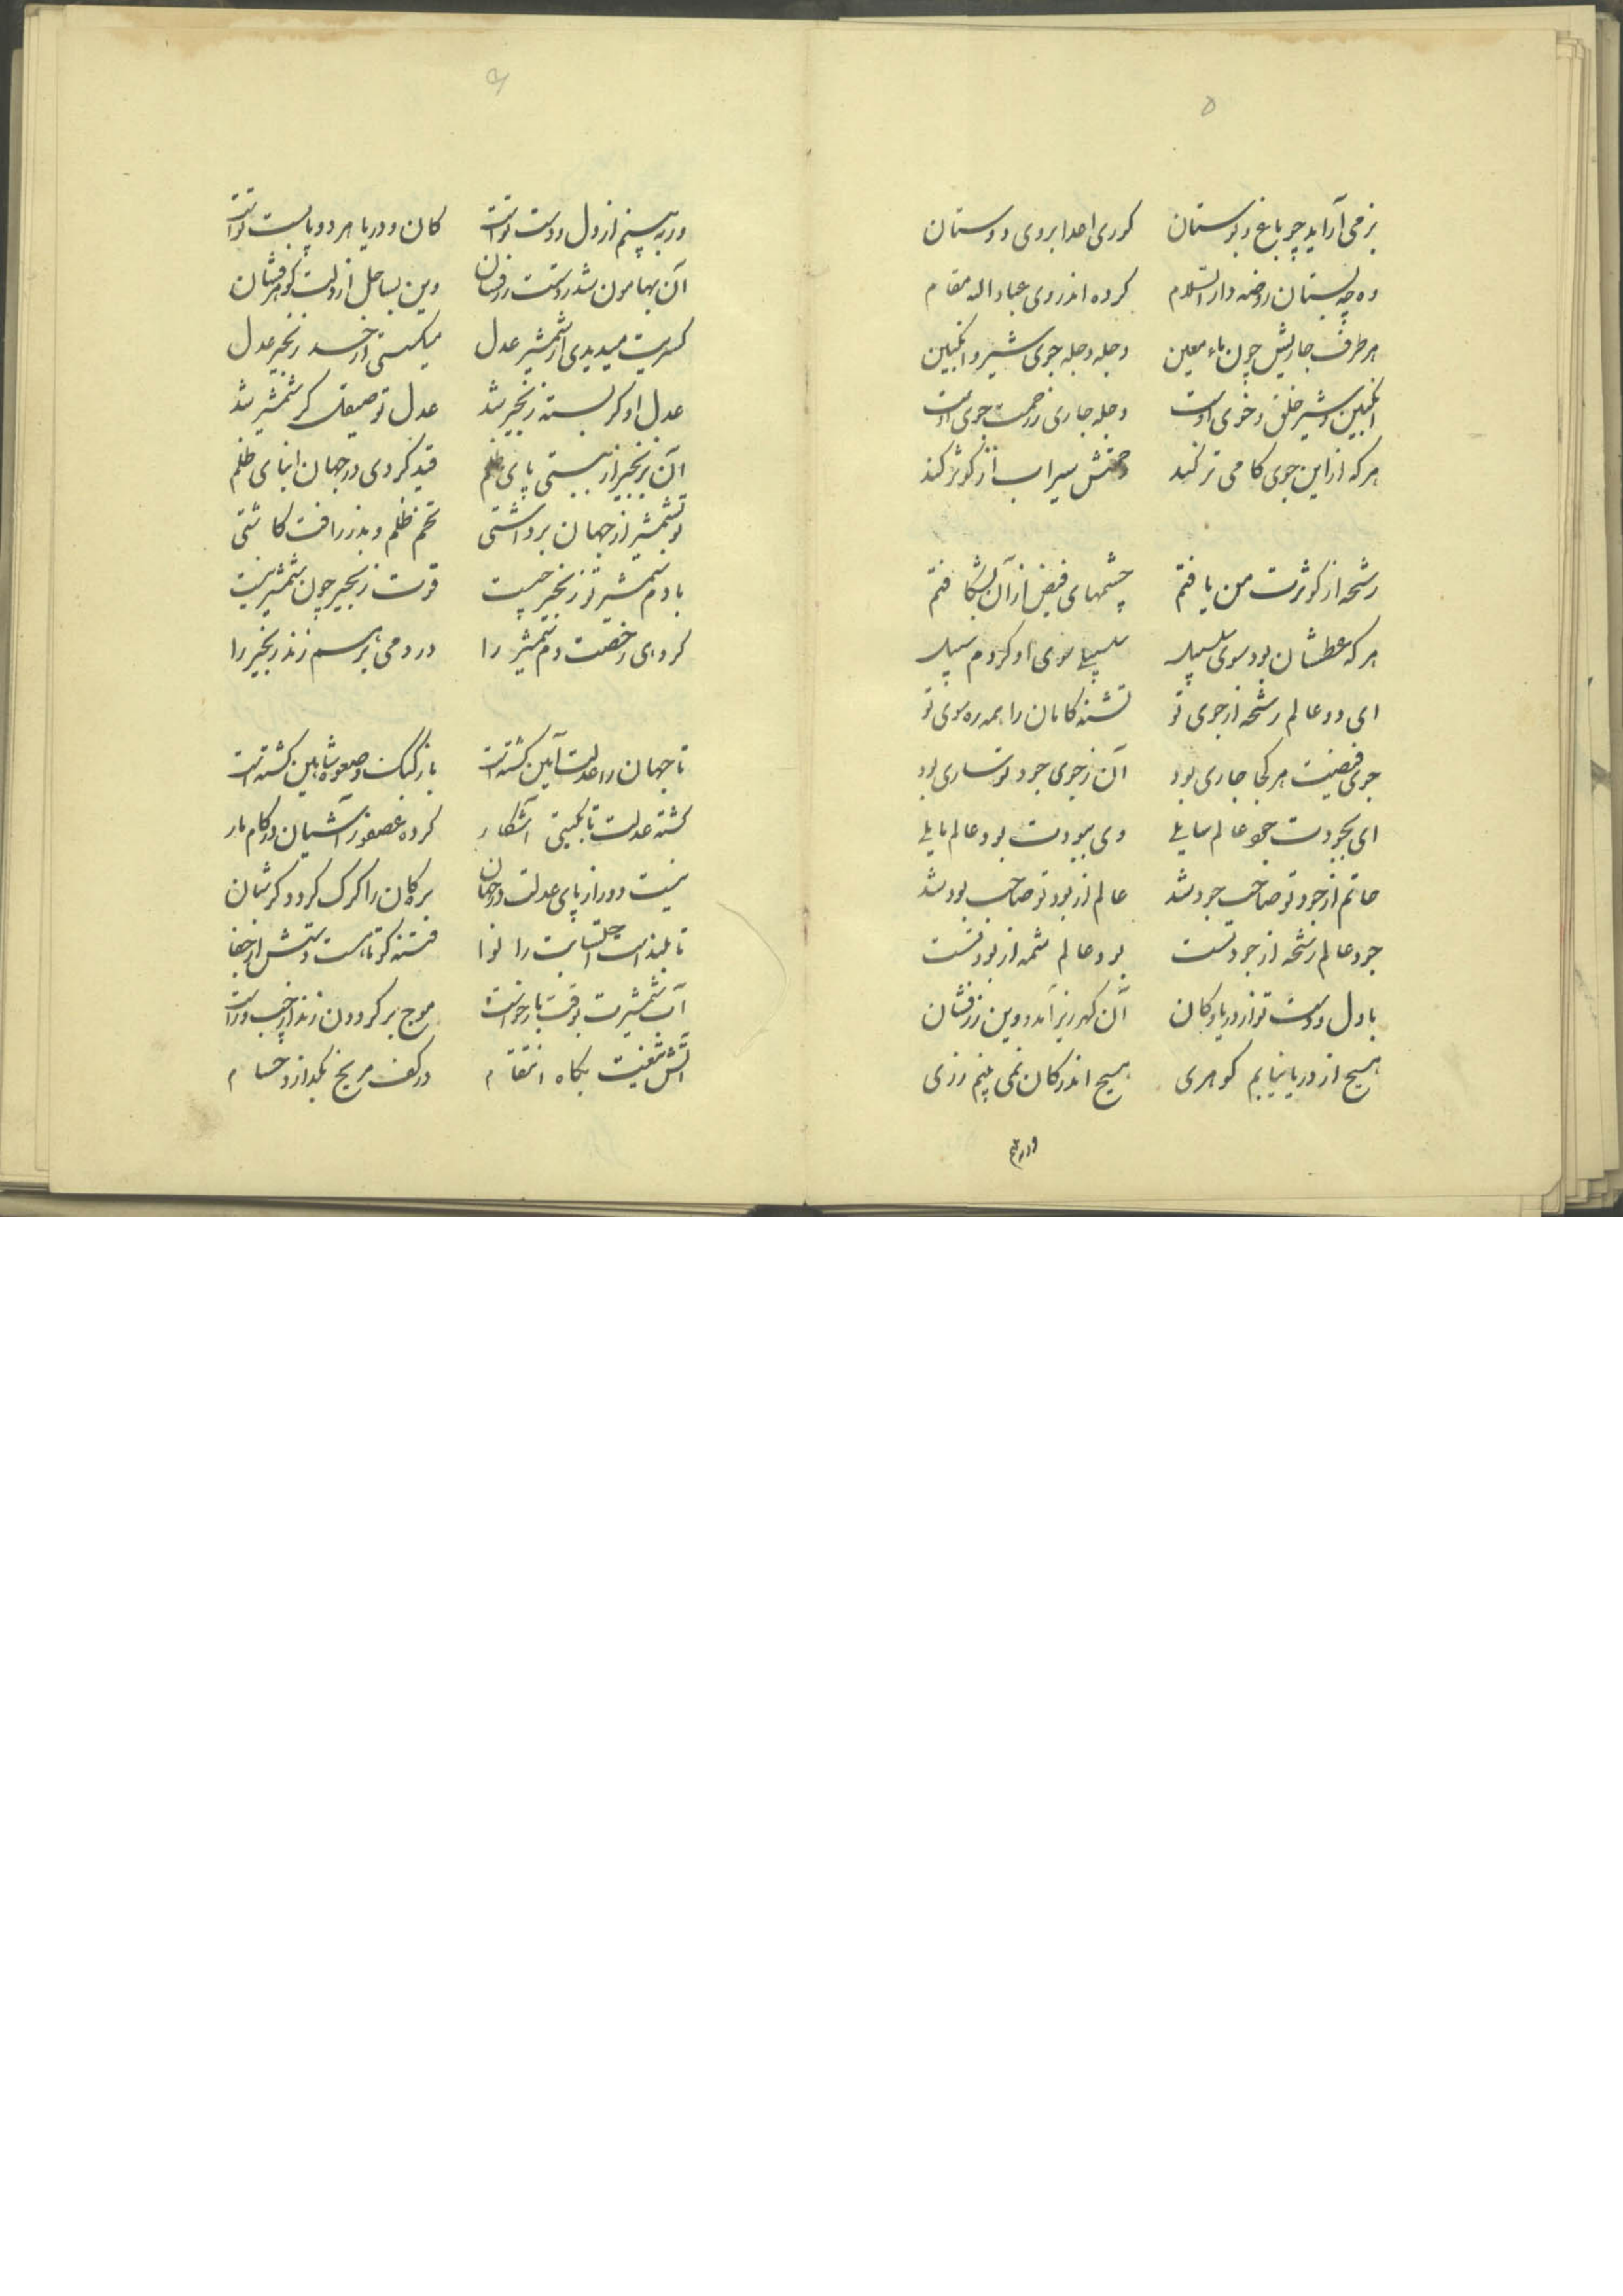 ۵
بزمی آراید چو باغ و بوستان کوری اعدا بروی دوستان
وه چه بستان روضه دار السلام کرده اندر وی عباد اله مقام
هر طرف جاریش چون ماء معین دجله دجله جوی شیر و انگبین
انگبین و شیر خلق و خوی اوست دجله جاری رحمت جوی اوست
هر که از این جوی کامی تر کند رحمتش سیراب از کوثر کند
رشحه از کوثرت من یافتم چشمهای فیض از آن بشکافتم
هر که عطشان بود سوی سلسبیل سلسبیلی سوی او کردم سبیل
ای دو عالم رشحه از جوی تو تشنه کامان را همه ره سوی تو
جوی فیضت هر کجا جاری بود آن ز جوی جود تو ساری بود
ای بجودت جود عالم سایلی وی ببودت بود عالم مایلی
حاتم از جود تو صاحب جود شد عالم از بود تو صاحب بود شد
جود عالم رشحه از جود تست بود عالم شمه از بود تست
با دل و دست تو از دریا و کان آن گهر ریز آمد و وین زرفشان
هیچ از دریا نیابم گوهری هیچ اندر کان نمی بینم زری
ور به بینم
۶
ور به بینم از دل و دست تو است کان و دریا هر دو پابست تو است
آن بهامون شد ز دستت زرفشان وین بساحل از دلت گوهرفشان
کسریت میدیدی ار شمشیر عدل میگسستی از حسد زنجیر عدل
عدل او گر بسته زنجیر شد عدل تو صیقل گر شمشیر شد
آن بزنجیر ار ببستی پای ظلم قید کردی در جهان ابنای ظلم
تو بشمشیر از جهان برداشتی تخم ظلم و بذر رافت کاشتی
با دم شمشیر تو زنجیر چیست قوت زنجیر چون شمشیر نیست
کر دهی رخصت دم شمشیر را در دمی از هم زند زنجیر را
تا جهان را عدلت آیین گشته است باز کبک و صعوه شاهین گشته است
گشته عدلت تا بگیتی آشکار کرده عصفور آشیان در کام مار
نیست دور از پای عدلت در جهان بره گان را گرگ گردد گر شبان
تا بلند است احتسابت را لوا فتنه کوتاهست دستش از جفا
آب شمشیرت بوقت بازخواست موج بر گردون زند از چپ و راست
آتش تیغت بگاه انتقام در کف مریخ بگدازد حسام